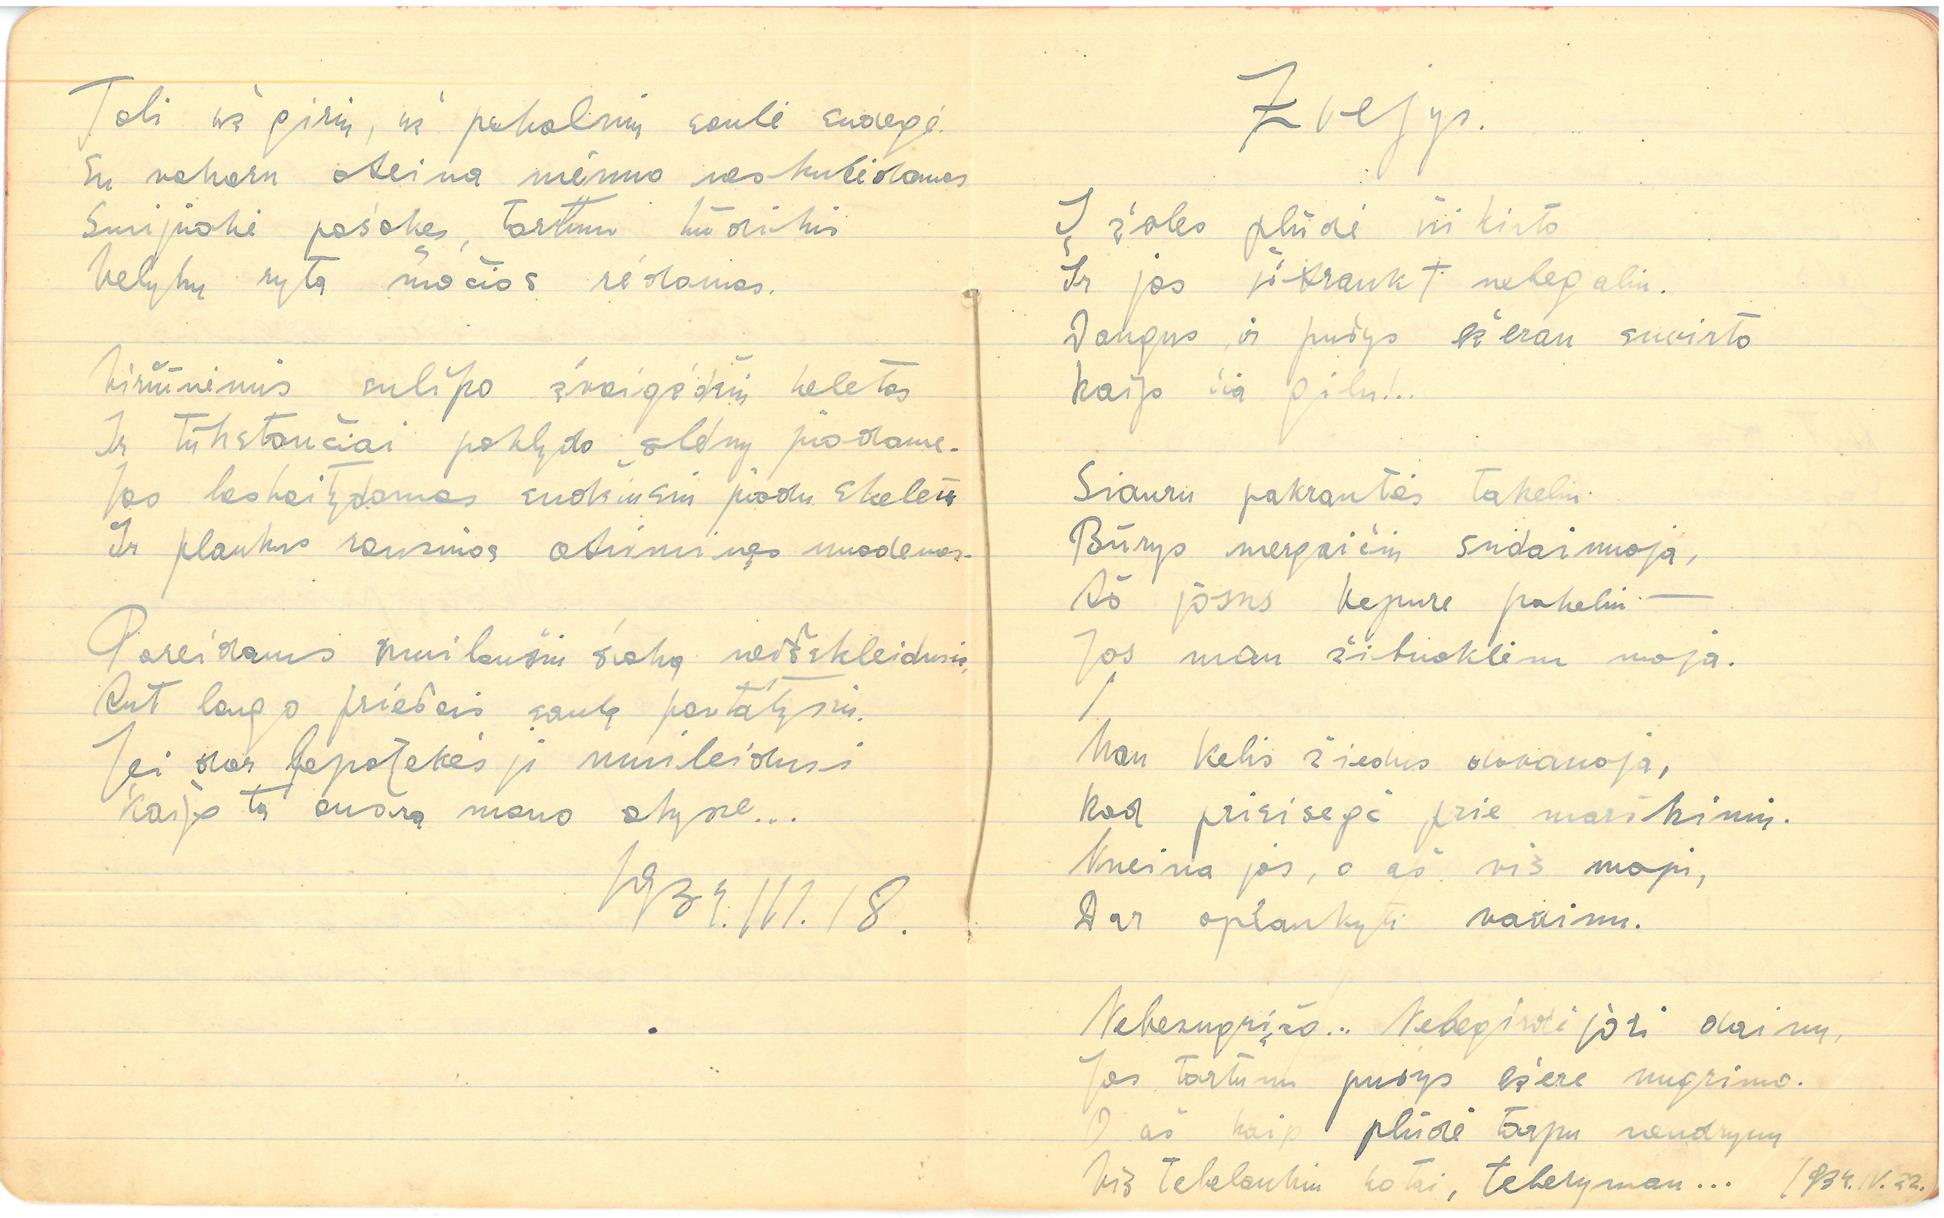 Toli už girių, už pakalnių saulė sudegė.
Su vakaru ateina mėnuo neskubėdamas
Snijuokė pašokęs, tartum kūdikis
Velykų rytą močios rėdomas.

Viršūnėmis sulipo žvaigždžių keletas
Ir tūkstančiai paklydo slėnų juodame.
Jas beskaitydamas sudžiusių juodu skeletu
Ir plaukus rausvinos atsiminęs nuodėmes.

Pareidamas smilaušių šaką neišskleidusių,
Ant lango priešais saulę pastatysiu.
Jei dar bepatekės ji nusileidusi
Kaip tą aušrą mano akyse...

1934.III.18.

Žvejys.

Į žoles plūdė įsikirto
Ir jos ištraukt nebegaliu.
Dangus ir pušys ežeran suvirto
Kaip čia gilu!..

Siauru pakrantės takeliu
Būrys mergaičių sudainuoja,
Aš joms kepurę pakeliu —
Jos man žibuoklėm moja.

Man kelis žiedus dovanoja,
Kad prisisegč prie marškinių.
Nueina jos, o aš vis moju,
Dar aplankyti vadinu.

Nebesugrįžo.. Nebegirdėt jori dainų,
Jos tartum pušys ežere nugrimo.
O aš kaip plūdė tarpu nendrynų
Vis tebelaukiu kotai, teberyman... 1934.IV.22.